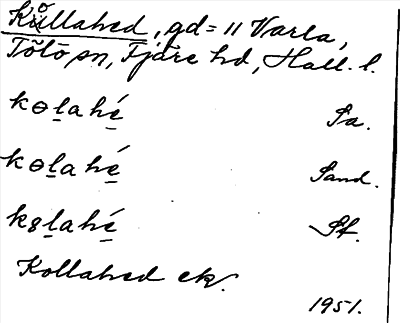 Kůllahed, gd = 11 Varla,
Tölö sn, Fjäre hd, Hall. l.
kɵḻahé̱ Sa.
kɵḻahé̱ Sand.
k8ḻahé̱ St.
Kollahed ek.
1951.